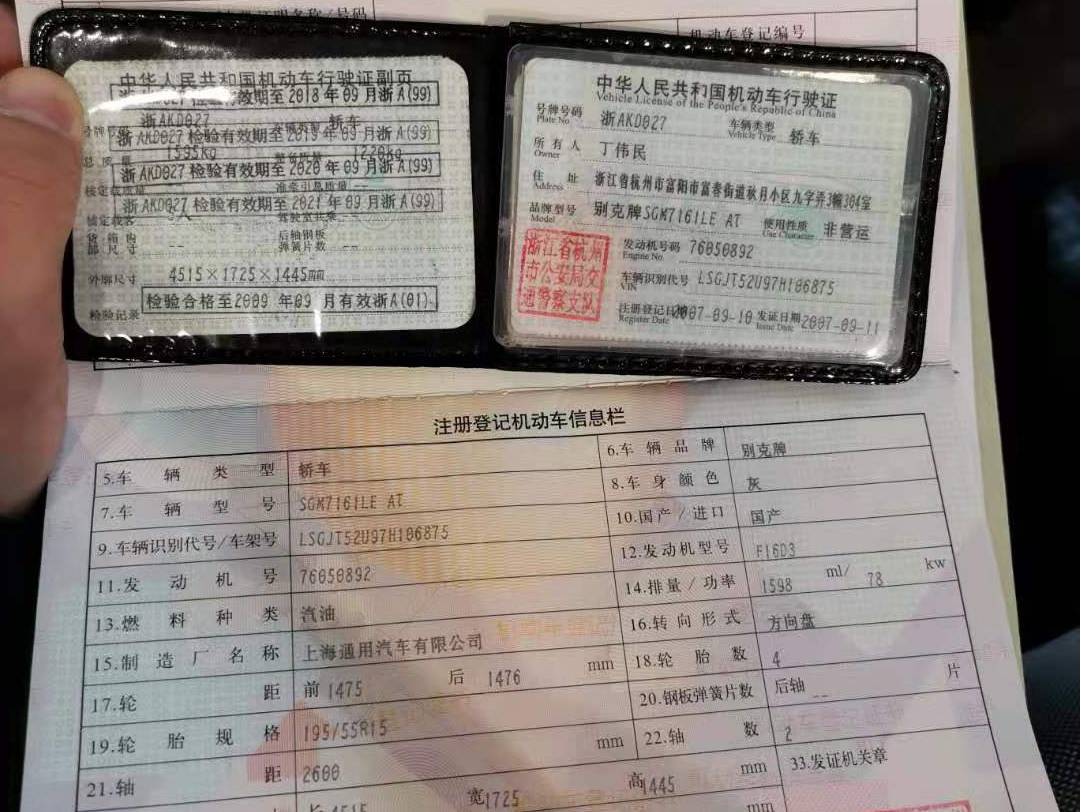 机动车登记编号
中华人民共和国机动车行驶证副页
检验有效期至2018年09月浙A(99)
浙AKD027 轿车
浙AKD027检验有效期至2019年09月浙A(99)
浙AKD027检验有效期至2020年09月浙A(99)
浙AKD027检验有效期至2021年09月浙A(99)
外廓尺寸 4515×1725×1445mm
检验记录 检验合格至2009年09月有效浙A(01)
中华人民共和国机动车行驶证
Vehicle License of the People's Republic of China
号牌号码 浙AKD027 车辆类型 轿车
Plate No. Vehicle Type
所有人 丁伟民
Owner
住址 浙江省杭州市富阳市富春街道秋月小区九字弄3幢304室
Address
品牌型号 别克牌SGM7161LE AT 使用性质 非营运
Model Use Character
浙江省杭州
市公安局交
通警察支队
发动机号码 76050892
Engine No.
车辆识别代号 LSGJT52U97H106875
VIN
注册登记日 2007-09-10 发证日期 2007-09-11
Register Date Issue Date
注册登记机动车信息栏
5.车辆类型 轿车 6.车辆品牌 别克牌
7.车辆型号 SGM7161LE AT 8.车身颜色 灰
9.车辆识别代号/车架号 LSGJT52U97H106875 10.国产/进口 国产
11.发动机号 76050892 12.发动机型号 F16D3
13.燃料种类 汽油 14.排量/功率 1598 ml/ 78 kw
15.制造厂名称 上海通用汽车有限公司 16.转向形式 方向盘
17.轮距 前1475 后1476 mm 18.轮胎数 4
19.轮胎规格 195/55R15 20.钢板弹簧片数 后轴 -- 片
21.轴距 2600 mm 22.轴数 2
长4515 宽1725 高1445 mm 33.发证机关章